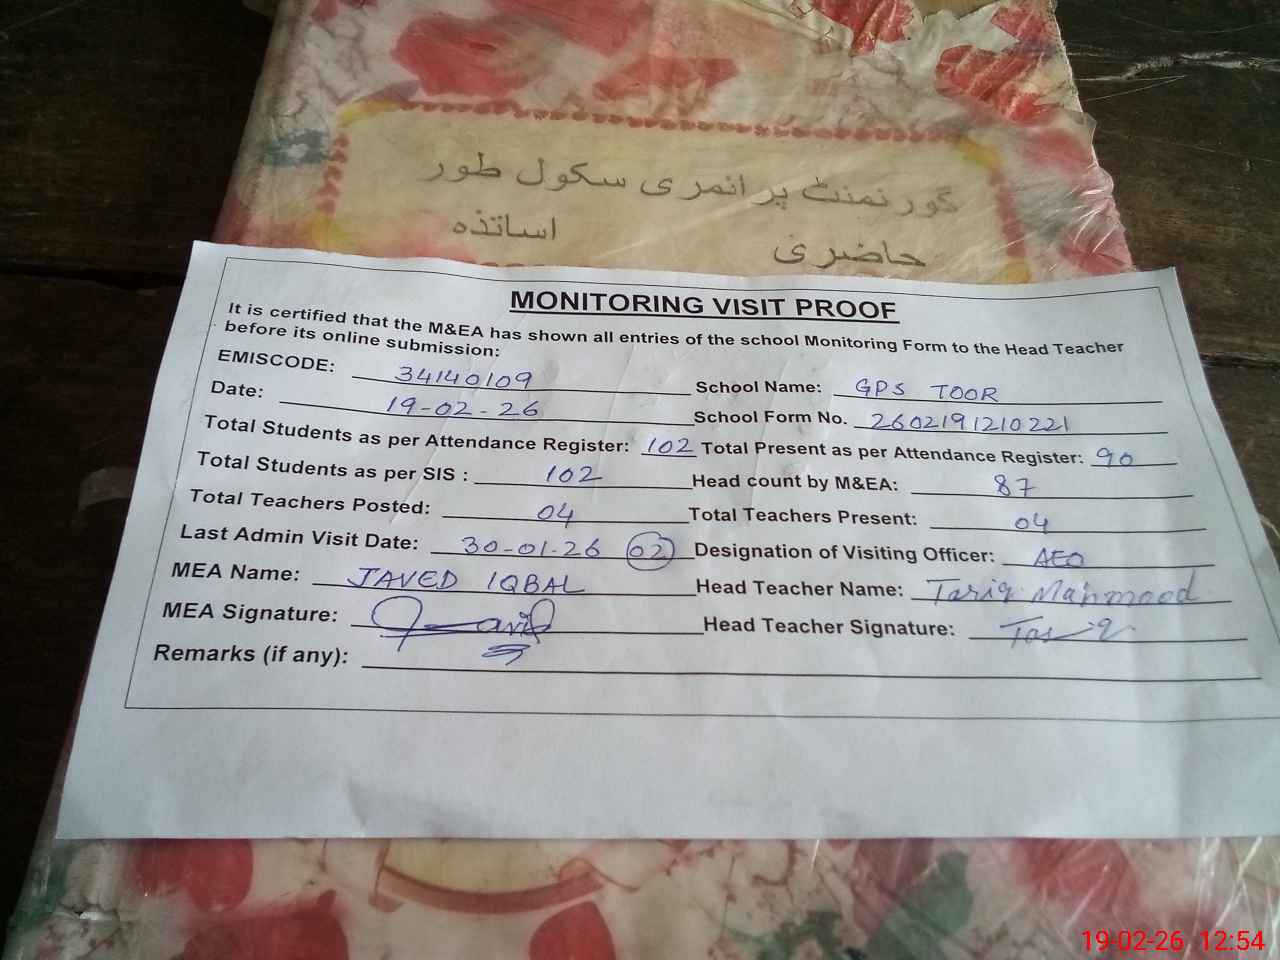 گورنمنٹ پرائمری سکول طور
حاضری اساتذہ
MONITORING VISIT PROOF
It is certified that the M&EA has shown all entries of the school Monitoring Form to the Head Teacher
before its online submission:
EMISCODE: 34140109 School Name: GPS TOOR
Date: 19-02-26 School Form No. 2602191210221
Total Students as per Attendance Register: 102 Total Present as per Attendance Register: 90
Total Students as per SIS : 102 Head count by M&EA: 87
Total Teachers Posted: 04 Total Teachers Present: 04
Last Admin Visit Date: 30-01-26 02 Designation of Visiting Officer: AEO
MEA Name: JAVED IQBAL Head Teacher Name: Tariq Mahmood
MEA Signature: Head Teacher Signature: Tariq
Remarks (if any):
19-02-26 12:54